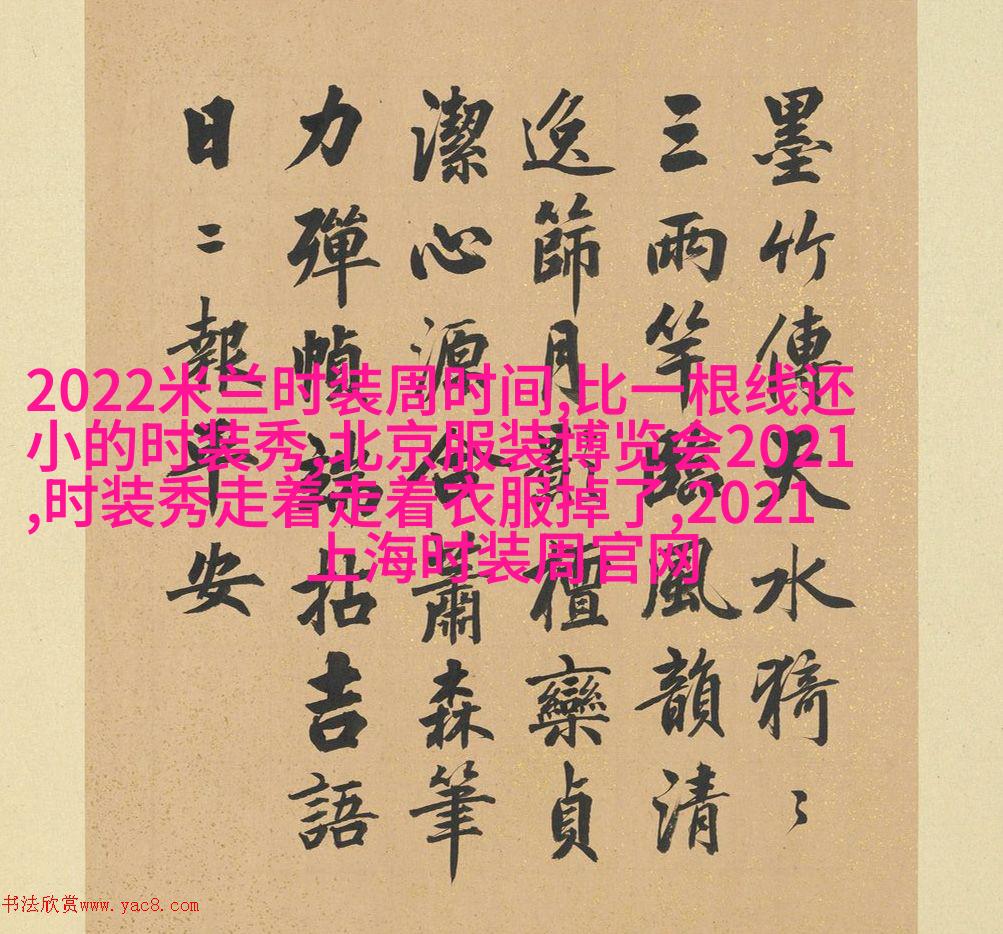 墨竹傳天水猗〻
三兩竿風韻清
逸篩月檀欒貞
潔心源合蕭森筆
力彈幀端拈吉語
日〻報平安
2022米兰时装周时间,比一根线还
小的时装秀,北京服装博览会2021
,时装秀走着走着衣服掉了,2021
上海时装周官网
书法欣赏www.yac8.com